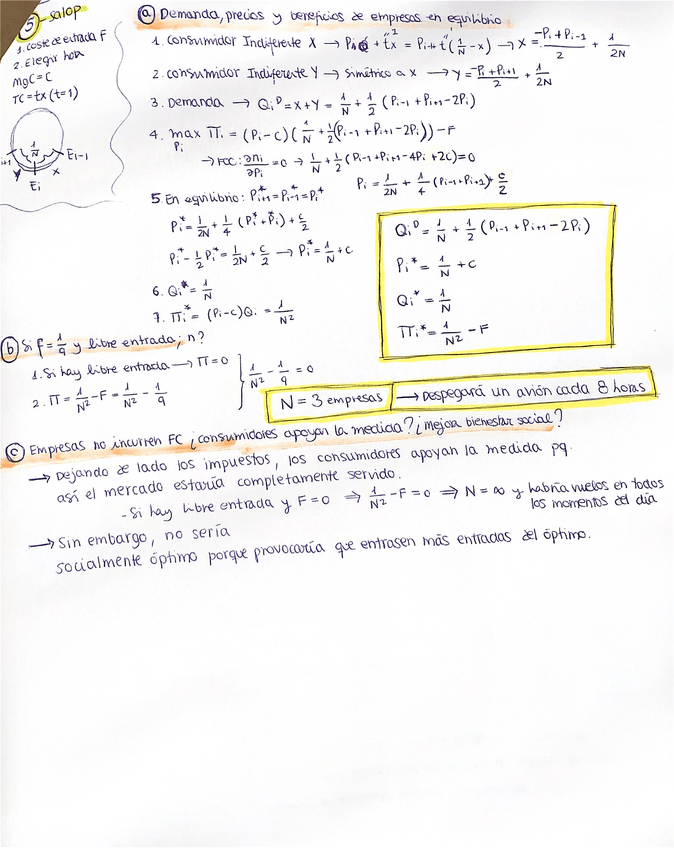 5 - Salop
1. coste de entrada F
2. Elegir hora
MgC = C
TC = tx (t=1)
1/N
i+1
Ei-1
y
x
Ei
a) Demanda, precios y beneficios de empresas en equilibrio
1. Consumidor Indiferente X → Pi + tx = Pi-1 + t(1/N - x) → x = (-Pi + Pi-1)/2 + 1/2N
2. consumidor Indiferente Y → Simétrico a X → Y = (-Pi + Pi+1)/2 + 1/2N
3. Demanda → Qi^D = X+Y = 1/N + 1/2 (Pi-1 + Pi+1 - 2Pi)
4. max Πi = (Pi-c)(1/N + 1/2(Pi-1 + Pi+1 - 2Pi)) - F
Pi
→ FOC: ∂Πi/∂Pi = 0 → 1/N + 1/2 (Pi-1 + Pi+1 - 4Pi + 2C) = 0
Pi = 1/2N + 1/4 (Pi-1 + Pi+1) + c/2
5. En equilibrio: Pi+1* = Pi-1* = Pi*
Pi* = 1/2N + 1/4 (Pi* + Pi*) + c/2
Pi* - 1/2 Pi* = 1/2N + c/2 → Pi* = 1/N + c
6. Qi* = 1/N
7. Πi* = (Pi-c)Qi = 1/N²
Qi^D = 1/N + 1/2 (Pi-1 + Pi+1 - 2Pi)
Pi* = 1/N + c
Qi* = 1/N
Πi* = 1/N² - F
b) Si f = 1/9 y libre entrada, n?
1. Si hay libre entrada → Π = 0
2. Π = 1/N² - F = 1/N² - 1/9
1/N² - 1/9 = 0
N = 3 empresas → Despegará un avión cada 8 horas
c) Empresas no incurren FC ¿consumidores apoyan la medida? ¿mejora bienestar social?
→ Dejando de lado los impuestos, los consumidores apoyan la medida pq.
así el mercado estaría completamente servido.
- Si hay libre entrada y F=0 ⇒ 1/N² - F = 0 ⇒ N = ∞ y habría vuelos en todos
los momentos del día
→ Sin embargo, no sería
socialmente óptimo porque provocaría que entrasen más entradas del óptimo.